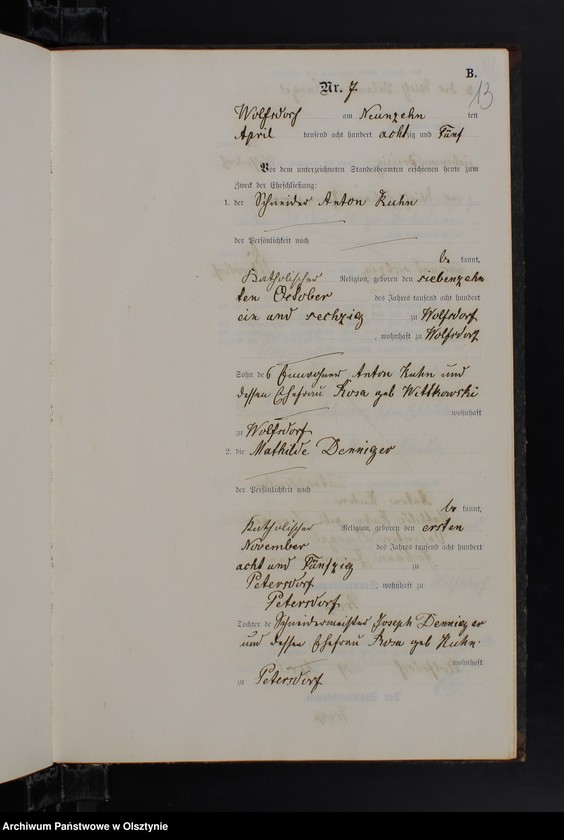 B.
13
Nr. 7
Wolfsdorf am Neunzehn ten
April tausend acht hundert achtzig und Fünf
Vor dem unterzeichneten Standesbeamten erschienen heute zum
Zweck der Eheschließung:
1. der Schneider Anton Kuhn
der Persönlichkeit nach
be kannt,
Katholischer Religion, geboren den siebenzehn
ten October des Jahres tausend acht hundert
ein und sechzig zu Wolfsdorf
, wohnhaft zu Wolfsdorf
Sohn des Einwohners Anton Kuhn und
dessen Ehefrau Rosa geb Wittkowski
wohnhaft
zu Wolfsdorf
2. die Mathilde Denniger
der Persönlichkeit nach
be kannt,
Katholischer Religion, geboren den ersten
November des Jahres tausend acht hundert
acht und Fünfzig zu
Petersdorf , wohnhaft zu
Petersdorf
Tochter de Schneidermeister Joseph Denniger
und dessen Ehefrau Rosa geb Kuhn
wohnhaft
zu Petersdorf
Archiwum Państwowe w Olsztynie